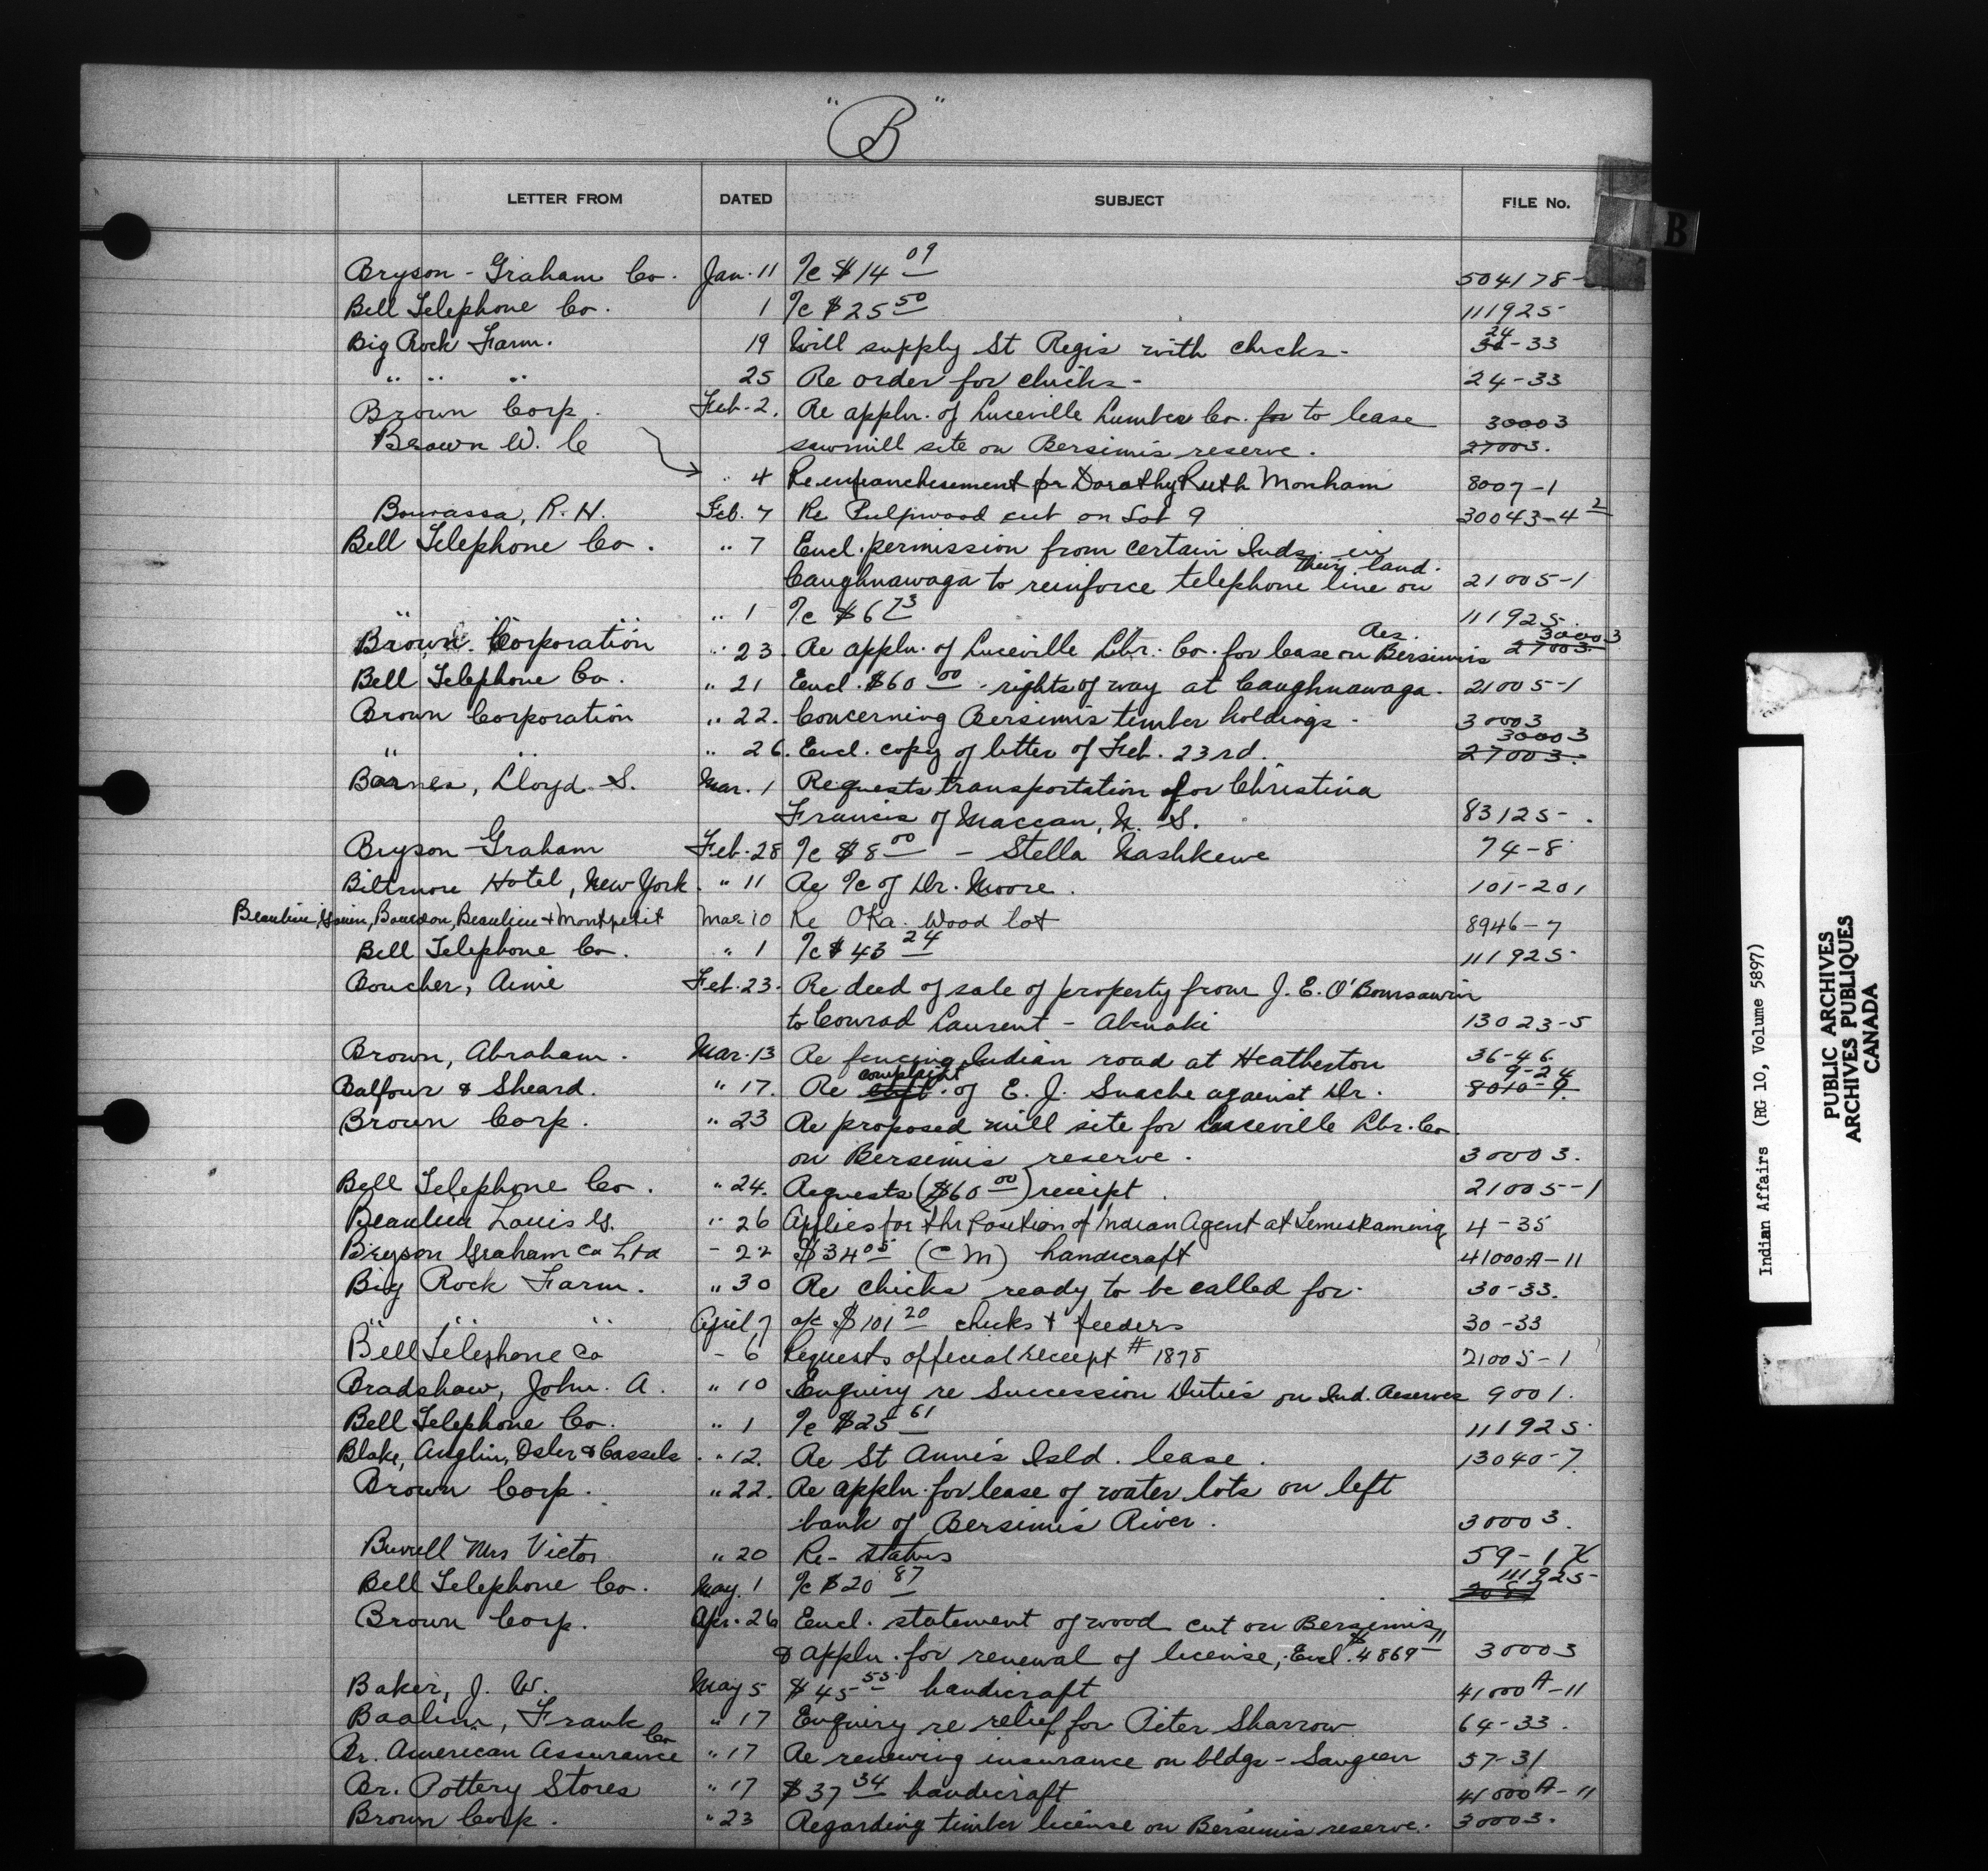 "B"
LETTER FROM DATED SUBJECT FILE No.
B
Bryson-Graham Co. Jan. 11 %c $14 09 504178-
Bell Telephone Co. 1 %c $25 50 111925
Big Rock Farm. 19 Will supply St Regis with chicks- 24-33
" " " 25 Re order for chicks- 24-33
Brown Corp. Feb. 2. Re appln. of Luceville Lumber Co. for to lease 30003
Brown W. C sawmill site on Bersimis reserve. 27003.
" 4 Re enfranchisement for Dorothy Ruth Monham 8007-1
Bourassa, R. H. Feb. 7 Re Pulpwood cut on Lot 9 30043-4 2
Bell Telephone Co. " 7 Encl. permission from certain Inds. in
their land.
Caughnawaga to reinforce telephone line on 21005-1
" " " 1 %c $6 73 111925.
Res. 30003
Brown Corporation " 23. Re appln. of Luceville Lbr. Co. for lease on Bersimis 27003.
Bell Telephone Co. " 21 Encl. $60 00 - rights of way at Caughnawaga. 21005-1
Brown Corporation " 22. Concerning Bersimis timber holdings- 30003
30003
" " " 26. Encl. copy of letter of Feb. 23rd. 27003.
Barnes, Lloyd S. Mar. 1 Requests transportation for Christina
Francis of Maccan, N. S. 83125-.
Bryson-Graham Feb. 28 %c $8 00 - Stella Nashkewe 74-8
Biltmore Hotel, New York. " 11 Re %c of Dr. Moore. 101-201
Beaulieu, Bourdon, Beaulieu & Montpetit Mar 10 Re Oka Wood lot 8946-7
Bell Telephone Co. " 1 %c $43 24 111925
Boucher, Aimé Feb. 23. Re deed of sale of property from J. E. O'Bomsawin
to Conrad Laurent - Abenaki 13023-5
Brown, Abraham. Mar. 13 Re fencing Indian road at Heatherton 36-46
complaint 9-24
Balfour & Sheard. " 17. Re of E. J. Suache against Dr. 8010-9.
Brown Corp. " 23 Re proposed mill site for Luceville Lbr. Co.
on Bersimis reserve. 30003.
Bell Telephone Co. " 24. Requests ($60 00) receipt. 21005-1
Beaulieu Louis G. " 26 Applies for the Position of Indian Agent at Temiskaming 4-35
Bryson Graham Co Ltd - 22 $34 05 (CM) handicraft 41000A-11
Big Rock Farm. " 30 Re chicks ready to be called for. 30-33.
" " " April 7 a/c $101 20 chicks & feeders 30-33
Bell Telephone Co - 6 Requests official receipt # 1878 21005-1
Bradshaw, John. A. " 10 Enquiry re Succession Duties on Ind. Reserves 9001.
Bell Telephone Co. " 1 %c $25 61 111925
Blake, Anglin, Osler & Cassels. " 12. Re St Anne's Isld. lease. 13040-7
Brown Corp. " 22. Re appln. for lease of water lots on left
bank of Bersimis River. 30003.
Burrell Mrs Victor " 20 Re- Status 59-1
111925-
Bell Telephone Co. May. 1 %c $20 87
Brown Corp. Apr. 26 Encl. statement of wood cut on Bersimis
& appln. for renewal of license, Encl. $4869 11 30003
Baker, J. W. May 5 $45 55 handicraft 41000A-11
Baalim, Frank " 17 Enquiry re relief for Peter Sharrow 64-33.
Br. American Assurance Co " 17 Re renewing insurance on bldgs - Saugeen 57-31
Br. Pottery Stores " 17 $37 34 handicraft 41000A-11
Brown Corp. " 23 Regarding timber license on Bersimis reserve. 30003.
Indian Affairs (RG 10, Volume 5897)
PUBLIC ARCHIVES
ARCHIVES PUBLIQUES
CANADA